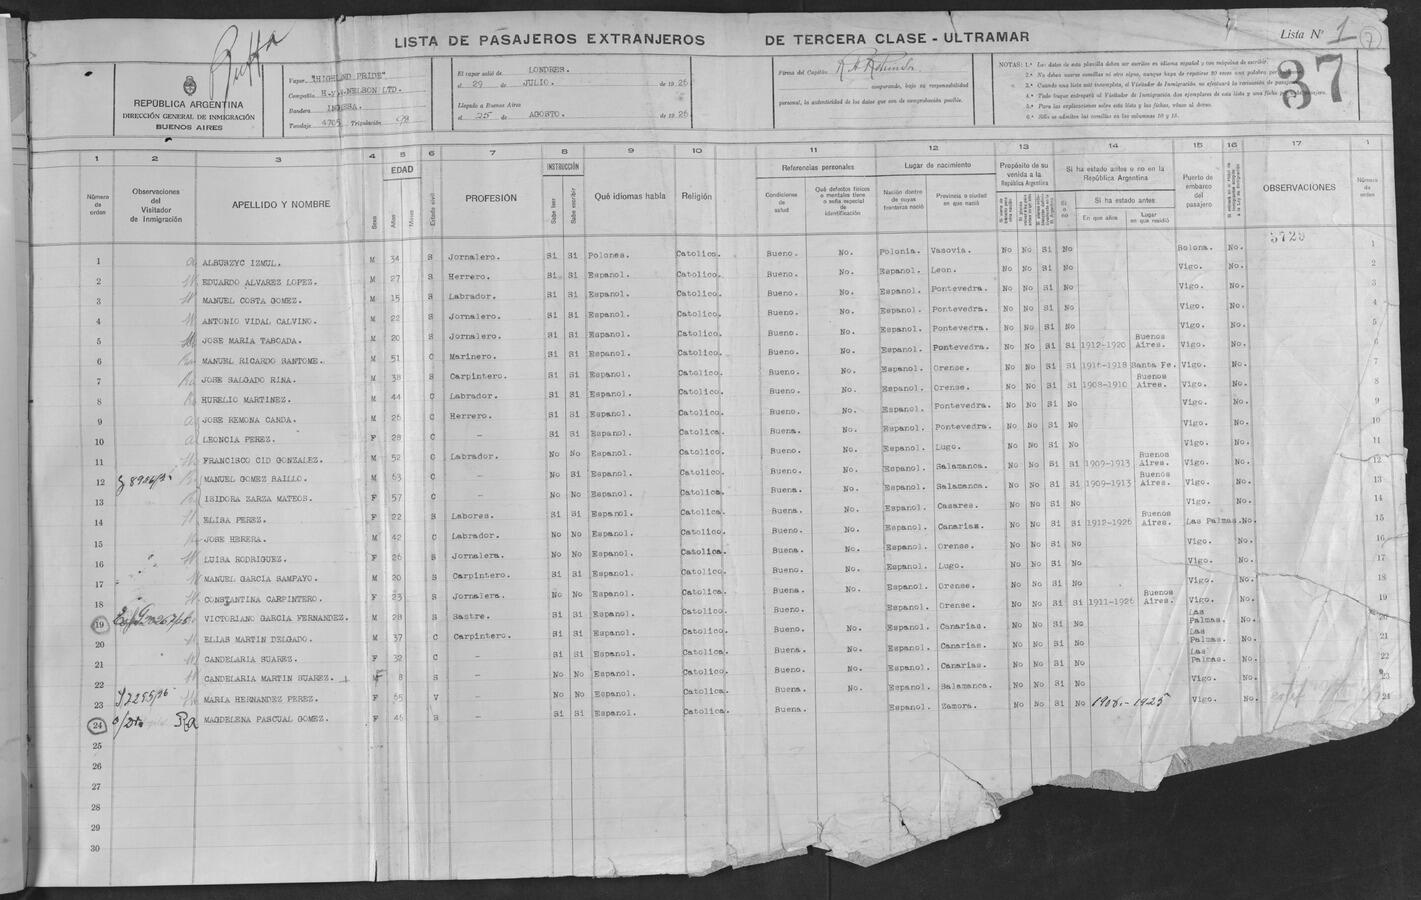 LISTA DE PASAJEROS EXTRANJEROS DE TERCERA CLASE - ULTRAMAR
Lista Nº 1
7
37
REPÚBLICA ARGENTINA
DIRECCIÓN GENERAL DE INMIGRACIÓN
BUENOS AIRES
Vapor "HIGHLAND PRIDE"
Compañía H.y.W.NELSON LTD.
Bandera INGLESA.
Tonelaje 4705 Tripulación 98
El vapor salió de LONDRES.
el 29 de JULIO. de 1926
Llegado a Buenos Aires
el 25 de AGOSTO. de 1926
Firma del Capitán
asegurando, bajo su responsabilidad
personal, la autenticidad de los datos que son de comprobación posible.
1 2 3 4 5 6 7 8 9 10 11 12 13 14 15 16 17 1
Número de orden
Observaciones del Visitador de Inmigración
APELLIDO Y NOMBRE
Sexo
EDAD
Años
Meses
Estado civil
PROFESIÓN
INSTRUCCIÓN
Sabe leer
Sabe escribir
Qué idiomas habla
Religión
Referencias personales
Condiciones de salud
Qué defectos físicos o mentales tiene o seña especial de identificación
Lugar de nacimiento
Nación dentro de cuyas fronteras nació
Provincia o ciudad en que nació
Propósito de su venida a la República Argentina
Si ha estado antes o no en la República Argentina
Si o no
Si ha estado antes
En que años
Lugar en que residió
Puerto de embarco del pasajero
OBSERVACIONES
Número de orden
5729
1 ALBUSZYC IZMUL. M 34 S Jornalero. Si Si Polones. Catolico. Bueno. No. Polonia. Vasovia. No No Si No Bolona. No. 1
2 EDUARDO ALVAREZ LOPEZ. M 27 S Herrero. Si Si Espanol. Catolico. Bueno. No. Espanol. Leon. No No Si No Vigo. No. 2
3 MANUEL COSTA GOMEZ. M 15 S Labrador. Si Si Espanol. Catolico. Bueno. No. Espanol. Pontevedra. No No Si No Vigo. No. 3
4 ANTONIO VIDAL CALVINO. M 22 S Jornalero. Si Si Espanol. Catolico. Bueno. No. Espanol. Pontevedra. No No Si No Vigo. No. 4
5 JOSE MARIA TABOADA. M 20 S Jornalero. Si Si Espanol. Catolico. Bueno. No. Espanol. Pontevedra. No No Si No Vigo. No. 5
6 MANUEL RICARDO SANTOME. M 51 C Marinero. Si Si Espanol. Catolico. Bueno. No. Espanol. Pontevedra. No No Si Si 1912-1920 Buenos Aires. Vigo. No. 6
7 JOSE SALGADO RINA. M 38 S Carpintero. Si Si Espanol. Catolico. Bueno. No. Espanol. Orense. No No Si Si 1916-1918 Santa Fe. Vigo. No. 7
8 HURELIO MARTINEZ. M 44 C Labrador. Si Si Espanol. Catolico. Bueno. No. Espanol. Orense. No No Si Si 1908-1910 Buenos Aires. Vigo. No. 8
9 JOSE REMONA CANDA. M 26 C Herrero. Si Si Espanol. Catolico. Bueno. No. Espanol. Pontevedra. No No Si No Vigo. No. 9
10 LEONCIA PEREZ. F 28 C - Si Si Espanol. Catolica. Buena. No. Espanol. Pontevedra. No No Si No Vigo. No. 10
11 FRANCISCO CID GONZALEZ. M 52 C Labrador. No No Espanol. Catolico. Bueno. No. Espanol. Lugo. No No Si No Vigo. No. 11
12 MANUEL GOMEZ BAILLO. M 63 C - No Si Espanol. Catolico. Bueno. No. Espanol. Salamanca. No No Si Si 1909-1913 Buenos Aires. Vigo. No. 12
13 ISIDORA ZARZA MATEOS. F 57 C - No No Espanol. Catolica. Buena. No. Espanol. Salamanca. No No Si Si 1909-1913 Buenos Aires. Vigo. No. 13
14 ELISA PEREZ. F 22 S Labores. Si Si Espanol. Catolica. Buena. No. Espanol. Casares. No No Si No Vigo. No. 14
15 JOSE HERERA. M 42 C Labrador. No No Espanol. Catolico. Bueno. No. Espanol. Canarias. No No Si Si 1912-1926 Buenos Aires. Las Palmas. No. 15
16 LUISA RODRIGUEZ. F 26 S Jornalera. No No Espanol. Catolica. Buena. No. Espanol. Orense. No No Si No Vigo. No. 16
17 MANUEL GARCIA SAMPAYO. M 20 S Carpintero. Si Si Espanol. Catolico. Bueno. No. Espanol. Lugo. No No Si No Vigo. No. 17
18 CONSTANTINA CARPINTERO. F 23 S Jornalera. No No Espanol. Catolica. Buena No. Espanol. Orense. No No Si No Vigo. No. 18
19 VICTORIANO GARCIA FERNANDEZ. M 28 S Sastre. Si Si Espanol. Catolico. Bueno. Espanol. Orense. No No Si Si 1911-1926 Buenos Aires. Vigo. No. 19
20 ELIAS MARTIN DELGADO. M 37 C Carpintero. Si Si Espanol. Catolico. Bueno. No. Espanol. Canarias. No No Si No Las Palmas. No. 20
21 CANDELARIA SUAREZ. F 32 C - Si Si Espanol. Catolica. Buena. No. Espanol. Canarias. No No Si No Las Palmas. No. 21
22 CANDELARIA MARTIN SUAREZ. F 8 S - No No Espanol. Catolico. Bueno. No. Espanol. Canarias. No No Si No Las Palmas. No.
23 MARIA HERNANDEZ PEREZ. F 65 V - No No Espanol. Catolica. Buena. No. Espanol. Salamanca. No No Si No Vigo. No. 23
24 Ra MAGDELENA PASCUAL GOMEZ. F 46 S - Si Si Espanol. Catolica. Buena. Espanol. Zamora. No No Si No 1908.-1925 Vigo. No. 24
25
26
27
28
29
30